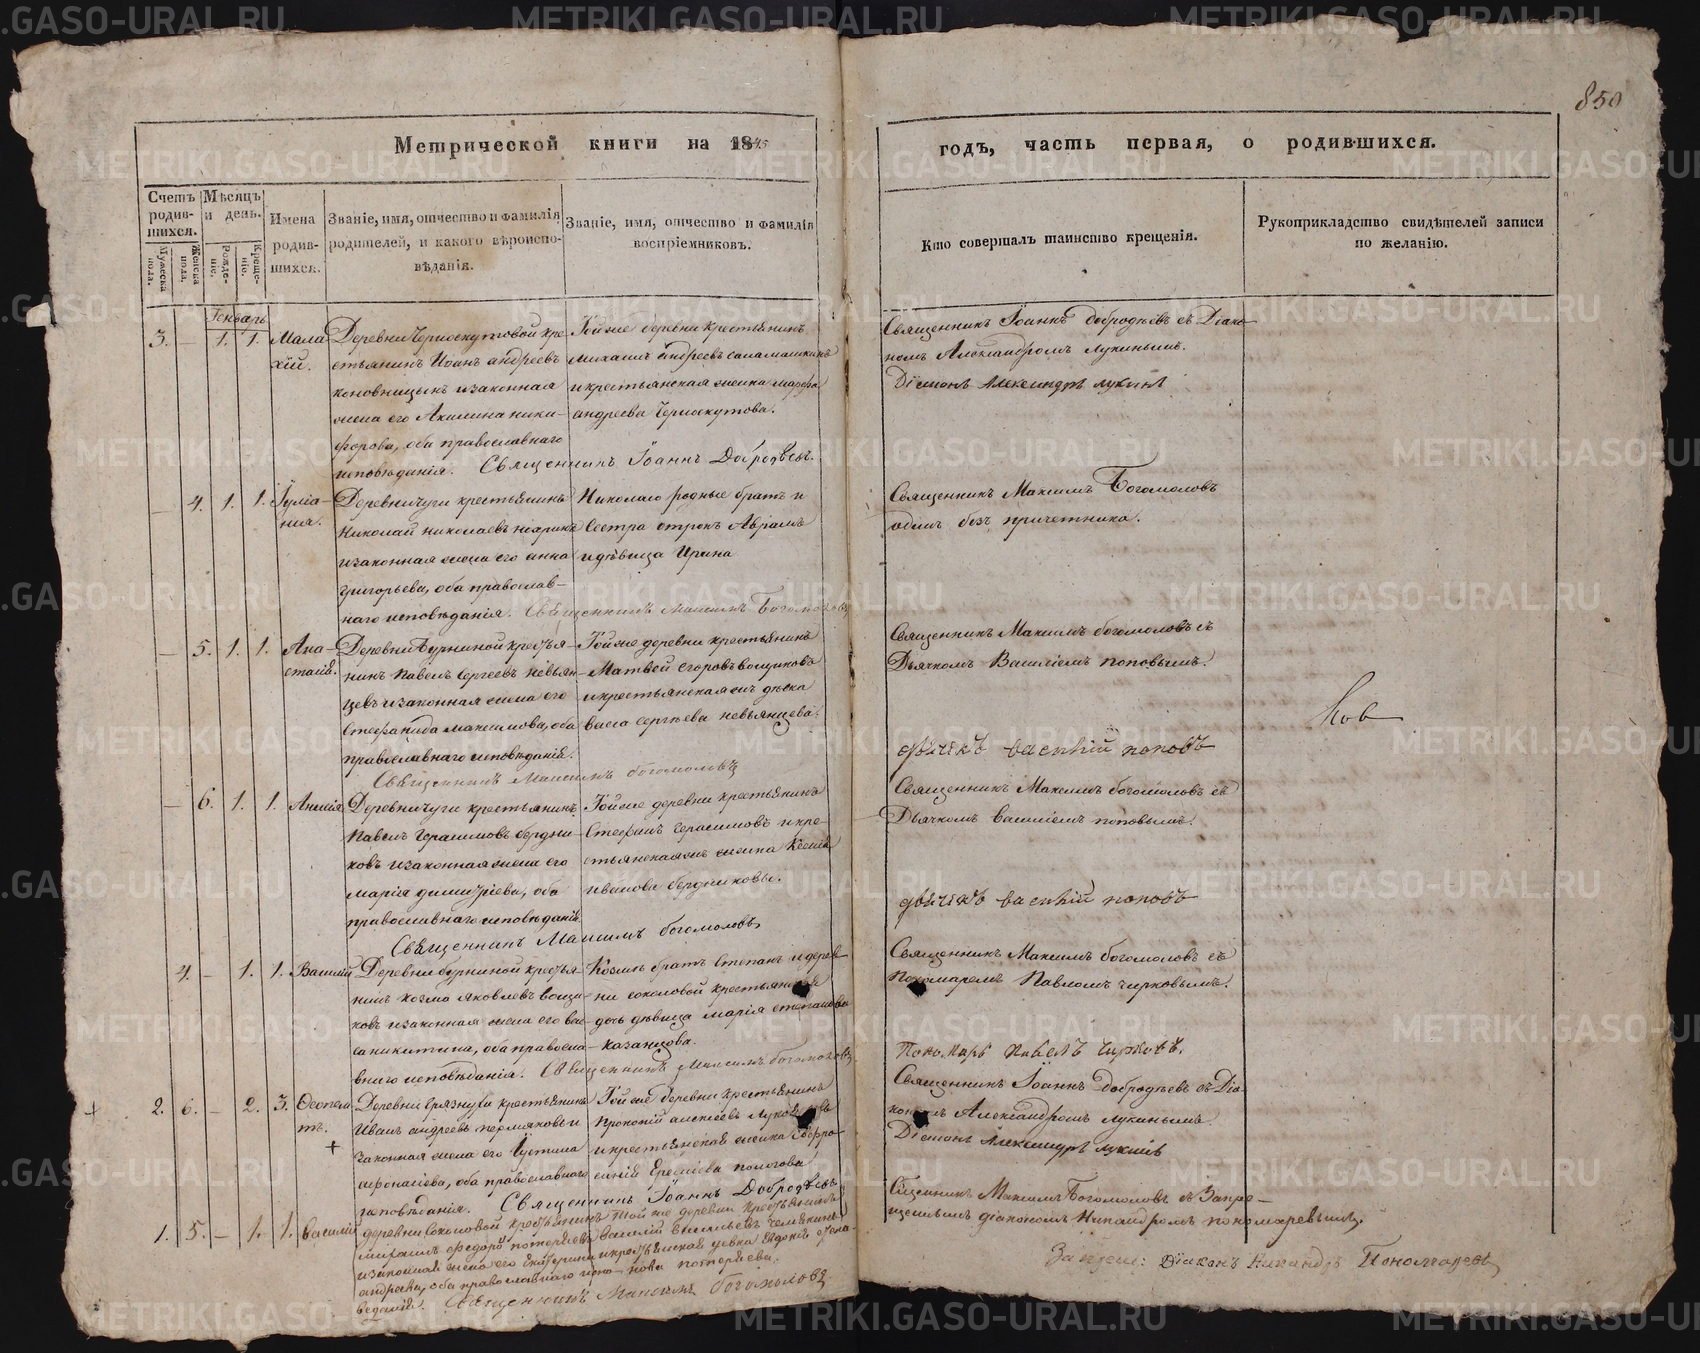 850
Метрической книги на 1845
годъ, часть первая, о родившихся.
Счетъ родив-
шихся.
Мѣсяцъ
и день.
Мужеска
пола.
Женска
пола.
Рожде-
ніе.
Креще-
ніе.
Имена
родив-
шихся.
Званіе, имя, отчество и фамилія
родителей, и какого вѣроиспо-
вѣданія.
Званіе, имя, отчество и фамилія
воспріемниковъ.
Кто совершалъ таинство крещенія.
Рукоприкладство свидѣтелей записи
по желанію.
Генварь
3. – 1. 1. Мала-
хій.
Деревни Черноскутовой кре-
стьянинъ Иванъ андреевъ
коновницынъ и законная
жена его Акилина ники-
форова, оба православнаго
исповѣданія. Священникъ Іоаннъ Добродѣевъ.
Той же деревни крестьянинъ
михаилъ андреевъ саламашкинъ
и крестьянская женка марфа
андреева Черноскутова.
Священникъ Іоаннъ добродѣевъ съ Діако-
номъ Александромъ Лукинымъ.
Діаконъ Александръ Лукинъ
– 4. 1. 1. Іуліа-
нія.
Деревни чуги крестьянинъ
Николай николаевъ
и законная жена его анна
григорьева, оба православ-
наго исповѣданія. Священникъ Максимъ Богомоловъ
Николаю родные братъ и
Сестра отрокъ Авраамъ
и дѣвица Ирина
Священникъ Максимъ Богомоловъ
одинъ безъ причетника.
– 5. 1. 1. Ана-
стасія.
Деревни Бурниной крестья-
нинъ Павелъ Сергеевъ невьян-
цевъ и законная жена его
Стефанида максимова, оба
православнаго исповѣданія.
Священникъ Максимъ богомоловъ
Той же деревни крестьянинъ
Матвей егоровъ вощиковъ
и крестьянская дѣвка
васса сергѣева невьянцева.
Священникъ Максимъ богомоловъ съ
Дьячкомъ Василіемъ поповымъ.
дьячекъ василій поповъ
ков
– 6. 1. 1. Анисія
Деревни чуги крестьянинъ
Павелъ Герасимовъ бердни-
ковъ и законная жена его
марія димитріева, оба
православнаго исповѣданія.
Священникъ Максимъ богомоловъ
Той же деревни крестьянинъ
Стефанъ герасимовъ и кре-
стьянская женка Ксенія
иванова бердниковы.
Священникъ Максимъ богомоловъ съ
Дьячкомъ василіемъ поповымъ.
дьячекъ василій поповъ
4. – 1. 1. Василій
Деревни бурниной крестья-
нинъ козма яковлевъ вощи-
ковъ и законная жена его вас-
са никитина, оба правосла-
внаго исповѣданія. Священникъ Максимъ богомоловъ
Козмы братъ Степанъ и дерев-
ни соколовой крестьянская
дочь дѣвица марія степанова
казанцова.
Священникъ Максимъ богомоловъ съ
Пономаремъ Павломъ чирковымъ.
Пономарь Павелъ Чирковъ.
2. 6. – 2. 3. Феопем-
птъ.
Деревни Грязнухи крестьянинъ
Иванъ андреевъ пермяковъ и
законная жена его Іустина
афонасіева, оба православнаго
исповѣданія. Священникъ Іоаннъ Добродѣевъ
Той же деревни крестьянинъ
Прокопій алексеевъ
и крестьянская женка Евфро-
синія Еремѣева пологова
Священникъ Іоаннъ добродѣевъ съ Діа-
кономъ Александромъ лукинымъ.
Діаконъ Александръ Лукинъ
1. 5. – 1. 1. василій
деревни Соколовой крестьянинъ
михаилъ федоровъ потеряевъ
и законная жена его Екатерина
андреева, оба православнаго испо-
веданія. Священникъ Максимъ богомоловъ
той же деревни крестьянинъ
василій васильевъ
и крестьянская девка Евдокія
потеряева.
Священникъ Максимъ Богомоловъ съ Запре-
щеннымъ діакономъ Никандромъ пономаревымъ.
Запрещ: Діаконъ Никандръ Пономаревъ
METRIKI.GASO-URAL.RU